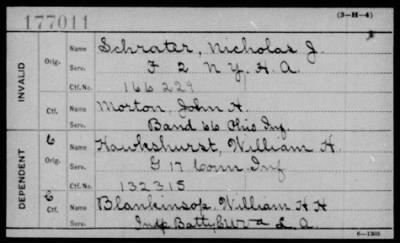 177011 (3-H-4)
INVALID
Orig. Name Schrater, Nicholas J.
Serv. F 2 N.Y. H.A.
Ctf. No. 166229
Ctf. Name Morton, John H.
Serv. Band 66 Ohio Inf.
DEPENDENT
6 Orig. Name Hawkshurst, William H.
Serv. G 17 Conn Inf
Ctf. No. 132315
6 Ctf. Name Blankinsop, William H H
Serv. Indp Batty L. A.
6-1305